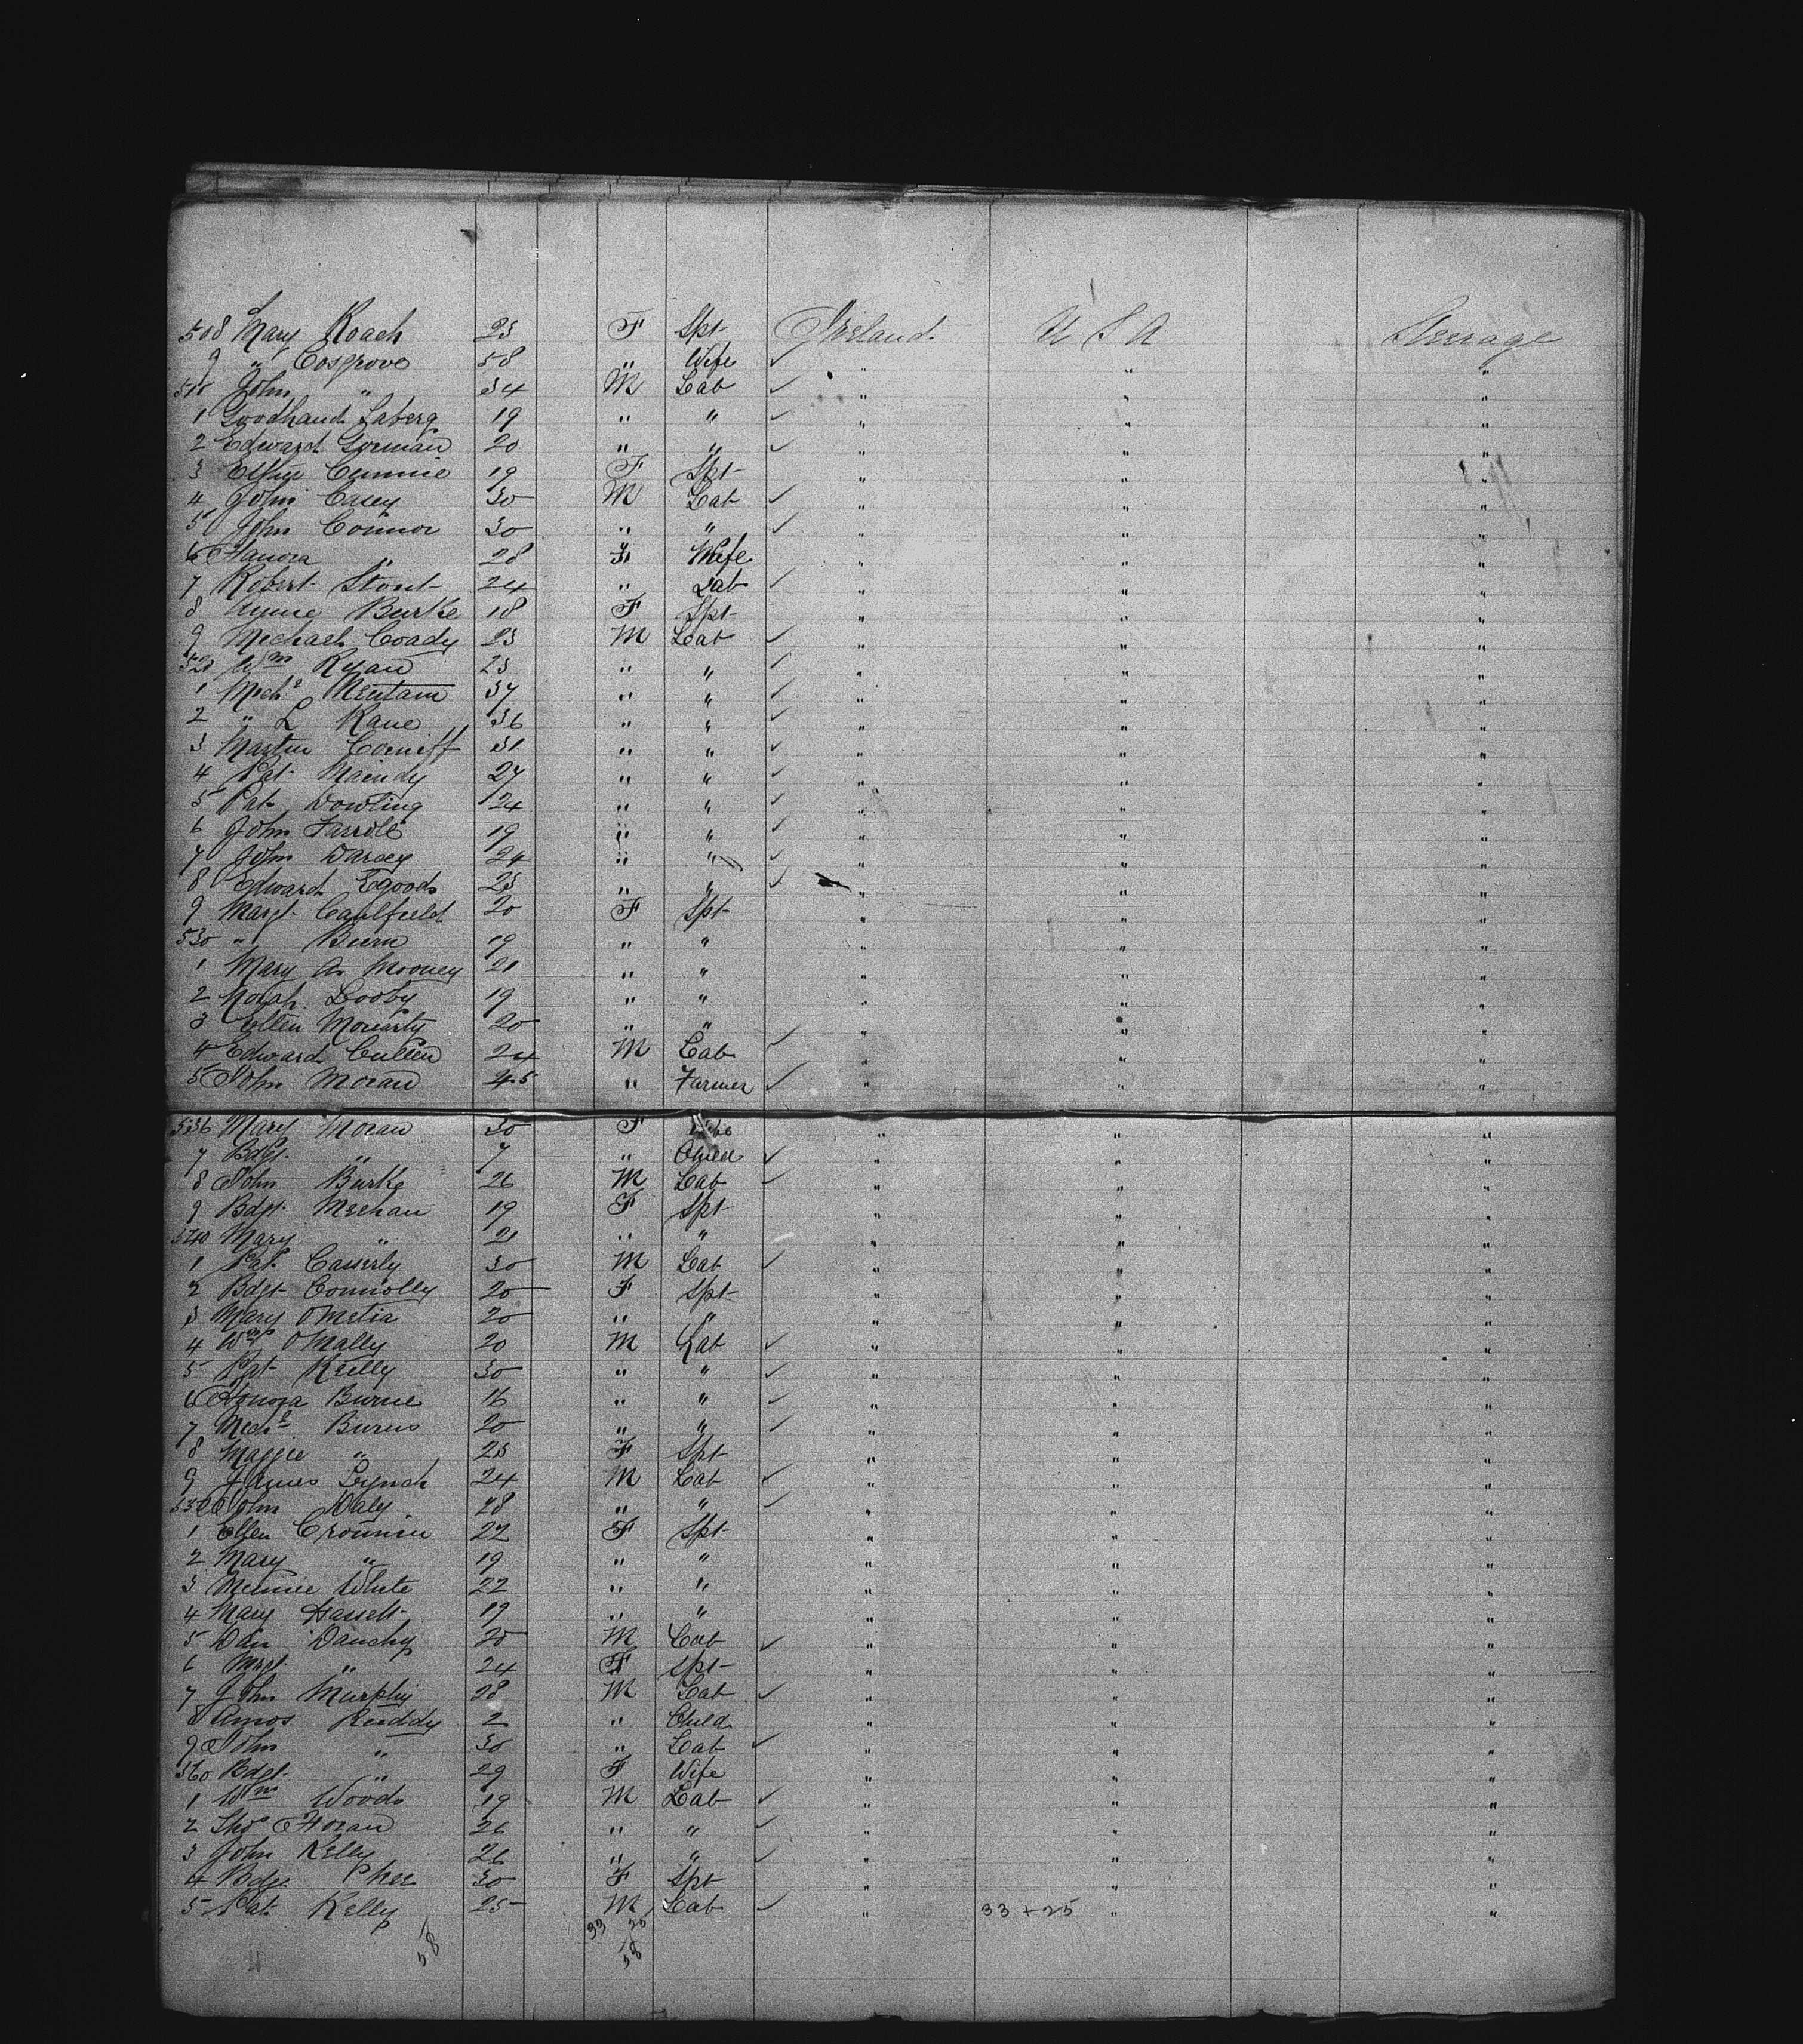 508 Mary Roach 23 F Spt Ireland U S A Steerage
9 " Cosgrove 58 " Wife ✓ " " "
510 John " 34 M Lab ✓ " " "
1 Goodhand Laberg 19 " " ✓ " " "
2 Edward Gorman 20 " " ✓ " " "
3 19 F Spt " " "
4 John Casey 30 M Lab ✓ " " "
5 John Connor 30 " " ✓ " " "
6 Hanora " 28 F Wife " " "
7 Robert Stout 24 " Lab ✓ " " "
8 Burke 18 F Spt " " "
9 Michael Coady 23 M Lab ✓ " " "
520 Wm Ryan 23 " " ✓ " " "
1 Michl 37 " " ✓ " " "
2 " L Kane 36 " " ✓ " " "
3 Martin Corniff 31 " " ✓ " " "
4 Pat 27 " " ✓ " " "
5 Pat Dowling 24 " " ✓ " " "
6 John Farrole 19 " " ✓ " " "
7 John Darcey 24 " " ✓ " " "
8 Edward Egoods 23 " " ✓ " " "
9 Margt Caulfield 20 F Spt " " "
530 " Beirn 19 " " " " "
1 Mary A Mooney 21 " " " " "
2 Norah Looby 19 " " " " "
3 Ellen Moriarty 20 " " " " "
4 Edward Cullen 24 M Lab ✓ " " "
5 John Moran 45 " Farmer ✓ " " "
536 Mary Moran 30 F Wife " " "
7 Bdgt " 7 " Child ✓ " " "
8 John Burke 26 M Lab ✓ " " "
9 Bdgt Meehan 19 F Spt " " "
540 Mary " 21 " " " " "
1 Pat Casserly 30 M Lab ✓ " " "
2 Bdgt Connolly 20 F Spt " " "
3 Mary OMelia 20 " " " " "
4 Wm OMally 20 M Lab ✓ " " "
5 Pat Reilly 30 " " ✓ " " "
6 Honora Burne 16 " " ✓ " " "
7 Michl Burns 20 " " ✓ " " "
8 Maggie " 23 F Spt " " "
9 James Lynch 24 M Lab ✓ " " "
550 John Daly 28 " " ✓ " " "
1 Ellen Cronnin 22 F Spt " " "
2 Mary " 19 " " " " "
3 Minnie White 22 " " " " "
4 Mary Hassett 19 " " " " "
5 Dan Danehy 20 M Lab ✓ " " "
6 Mrgt " 24 F Spt " " "
7 John Murphy 28 M Lab ✓ " " "
8 Amos Ruddy 2 " Child " " "
9 John " 30 " Lab ✓ " " "
560 Bdgt " 29 F Wife " " "
1 Wm Woods 19 M Lab ✓ " " "
2 Thos Horan 26 " " ✓ " " "
3 John Kelly 26 " " ✓ " " "
4 Bdgt 30 F Spt " " "
5 Pat Kelly 25 M Lab ✓ " 33 + 25 " "
58 33 25
58